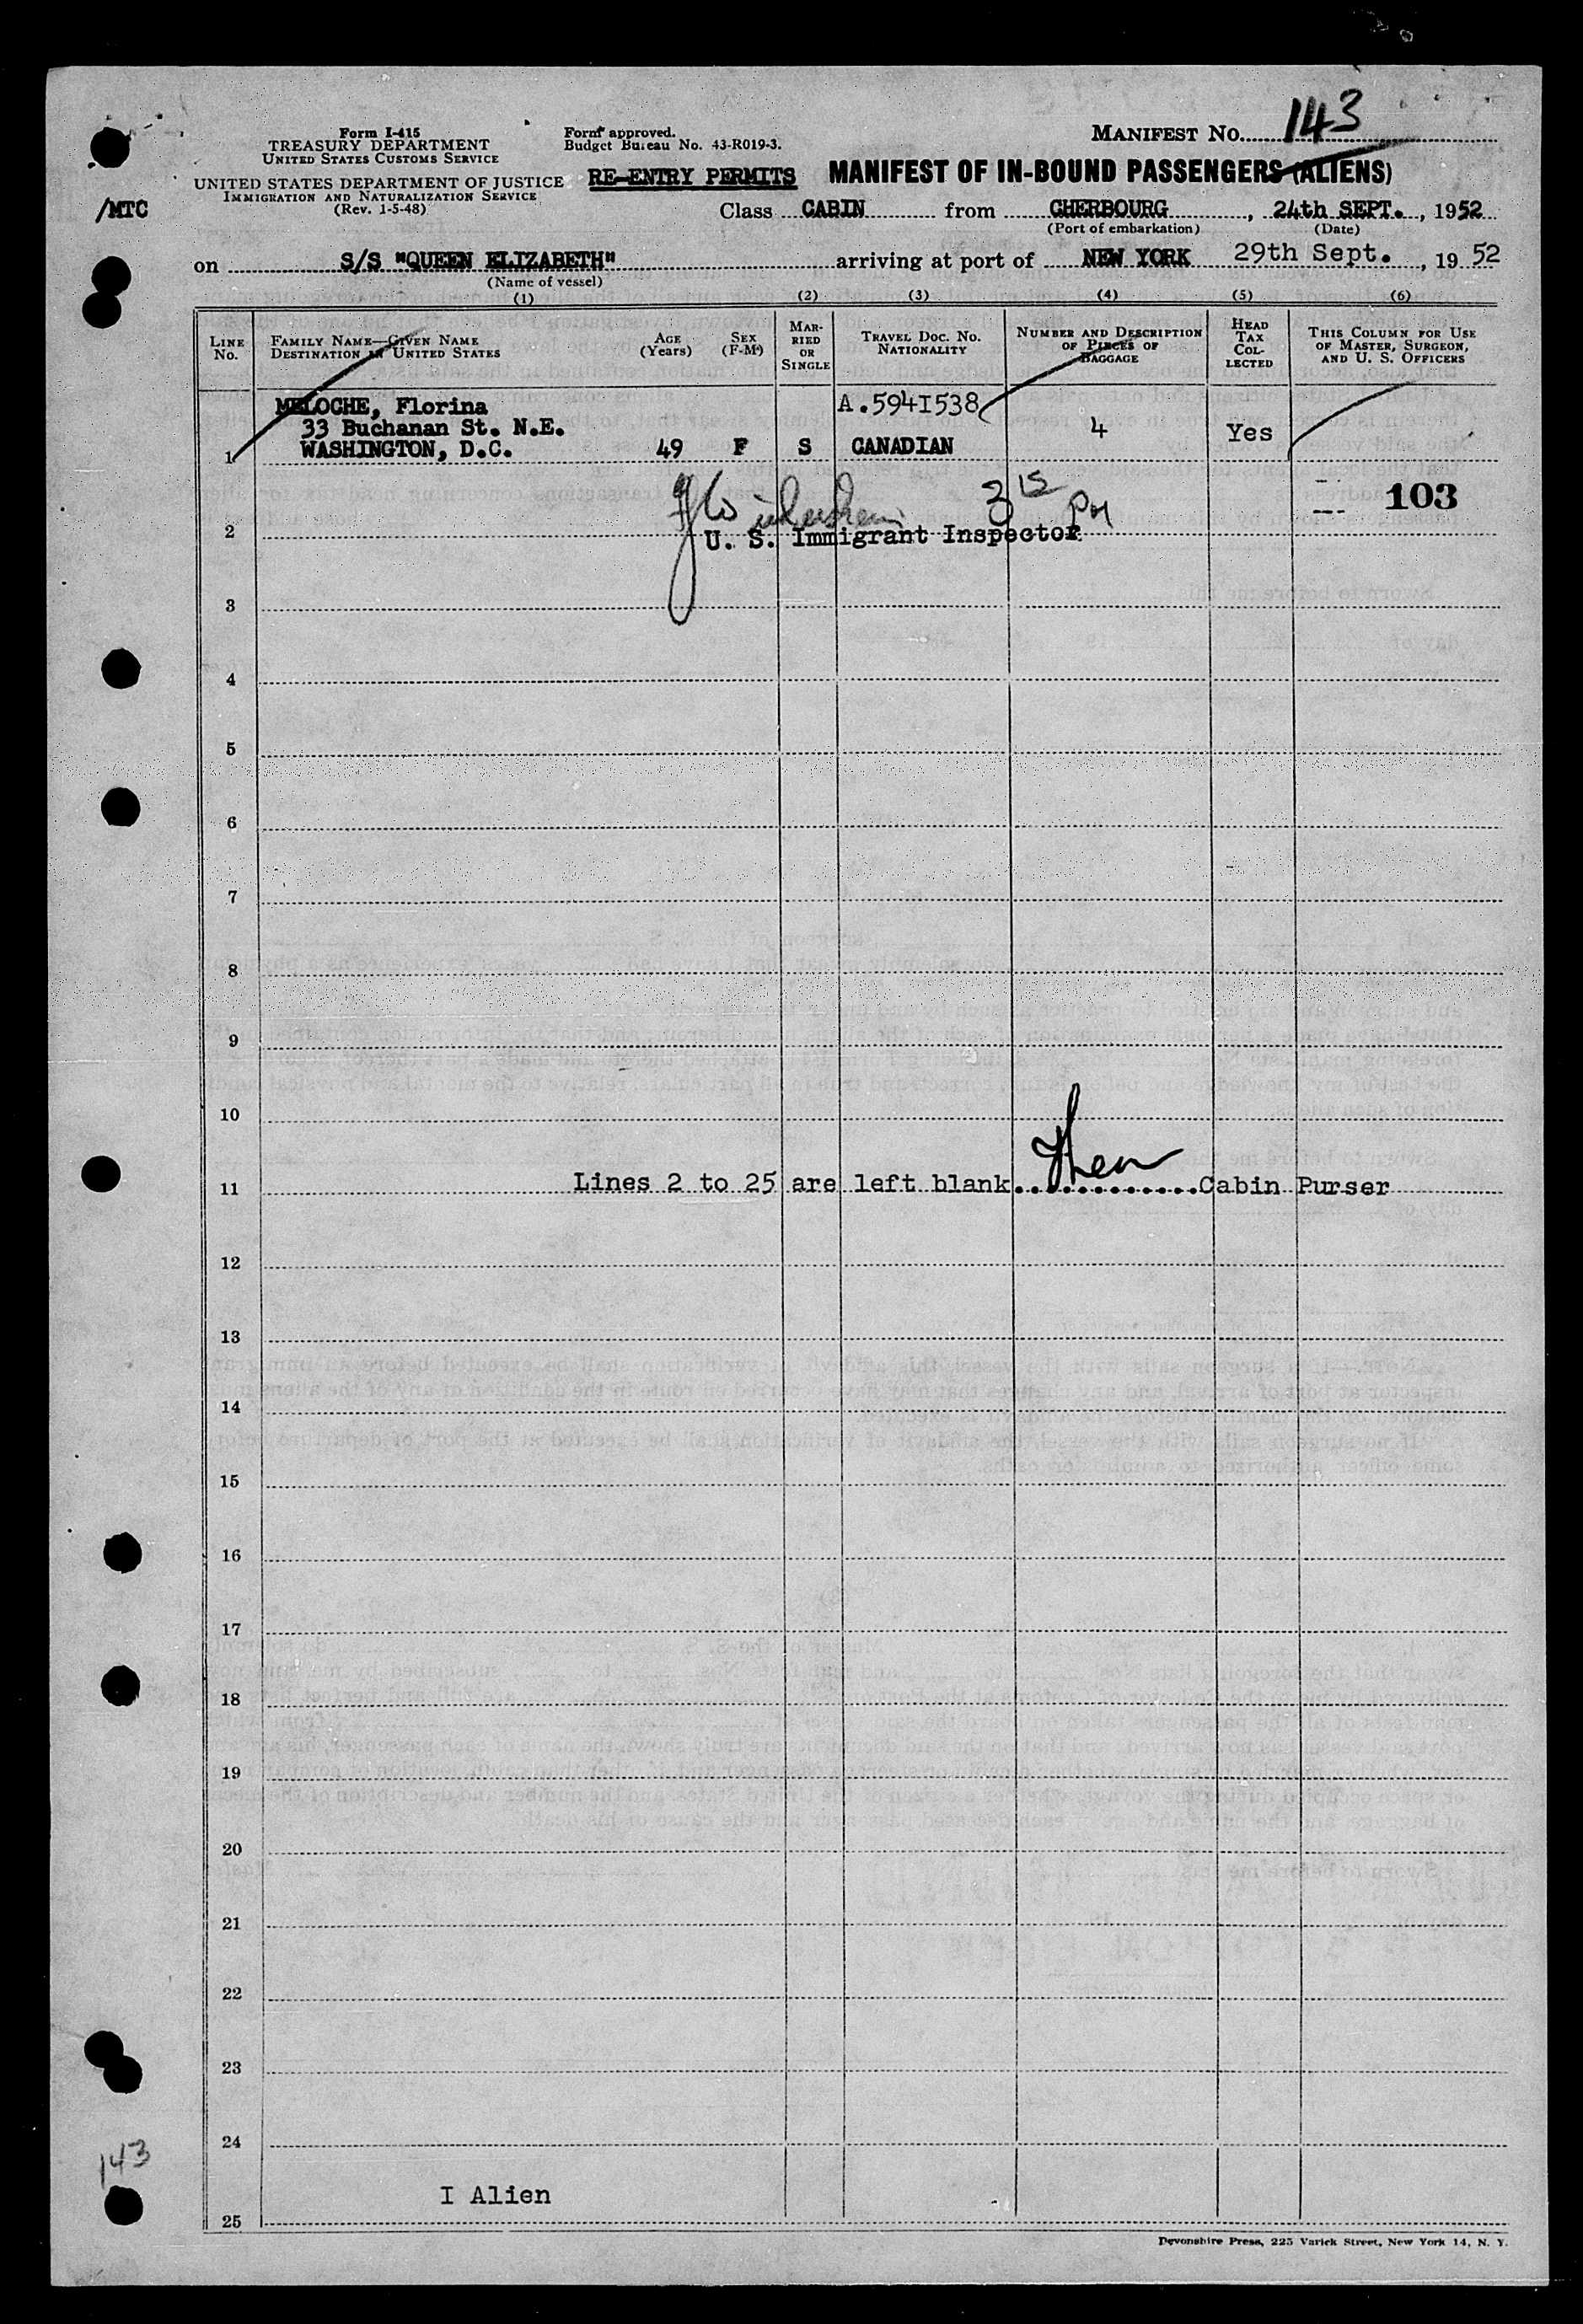 143
Form I-415
TREASURY DEPARTMENT
UNITED STATES CUSTOMS SERVICE
UNITED STATES DEPARTMENT OF JUSTICE
IMMIGRATION AND NATURALIZATION SERVICE
(Rev. 1-5-48)
/MTC
Form approved.
Budget Bureau No. 43-R019-3.
MANIFEST NO.
RE-ENTRY PERMITS MANIFEST OF IN-BOUND PASSENGERS (ALIENS)
Class CABIN from CHERBOURG, 24th SEPT., 1952
(Port of embarkation) (Date)
on S/S "QUEEN ELIZABETH" arriving at port of NEW YORK 29th Sept., 19 52
(Name of vessel)
(1) (2) (3) (4) (5) (6)
LINE No.
FAMILY NAME—GIVEN NAME
DESTINATION IN UNITED STATES
AGE (Years)
SEX (F-M)
MARRIED OR SINGLE
TRAVEL DOC. NO.
NATIONALITY
NUMBER AND DESCRIPTION OF PIECES OF BAGGAGE
HEAD TAX COLLECTED
THIS COLUMN FOR USE OF MASTER, SURGEON, AND U. S. OFFICERS
MELOCHE, Florina A.594I538
33 Buchanan St. N.E. 4 Yes
1 WASHINGTON, D.C. 49 F S CANADIAN
103
2 U. S. Immigrant Inspector
3
4
5
6
7
8
9
10
11 Lines 2 to 25 are left blank.............Cabin Purser
12
13
14
15
16
17
18
19
20
21
22
23
24
143
I Alien
25
Devonshire Press, 225 Varick Street, New York 14, N. Y.